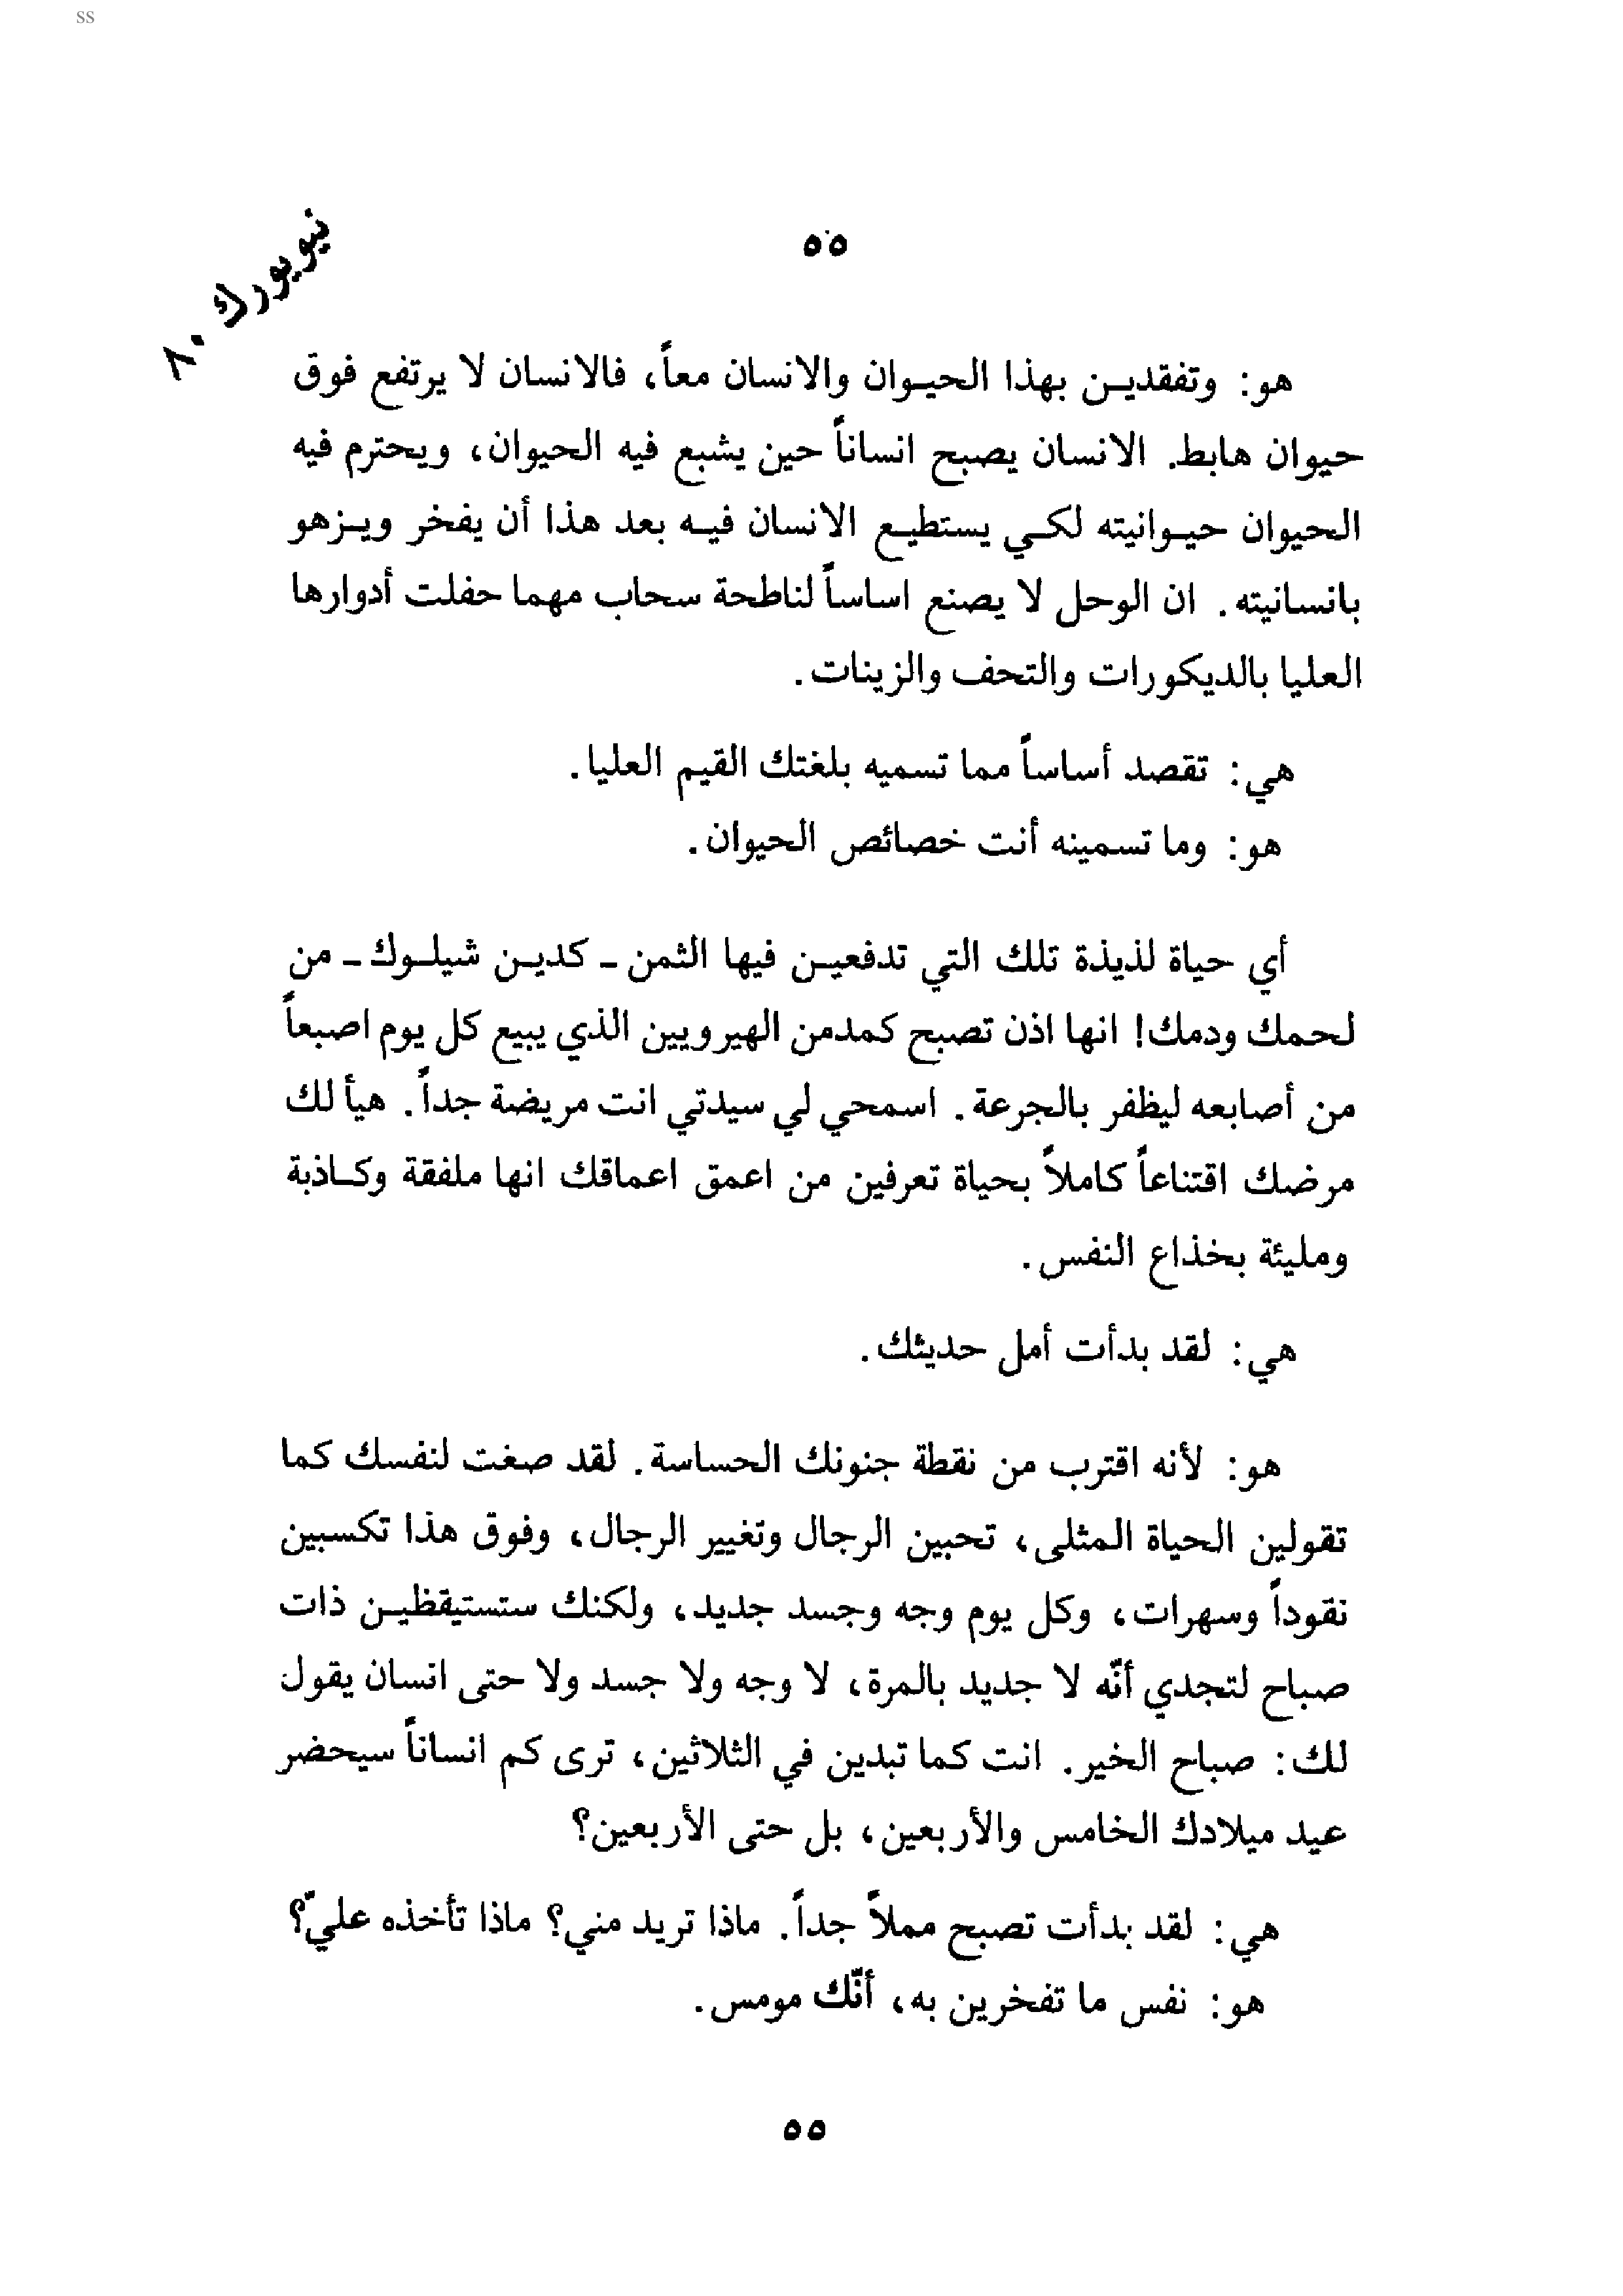 ss
٥٥
نيويورك ٨٠
هو: وتفقدين بهذا الحيوان والانسان معاً، فالانسان لا يرتفع فوق
حيوان هابط. الانسان يصبح انساناً حين يشبع فيه الحيوان، ويحترم فيه
الحيوان حيوانيته لكي يستطيع الانسان فيه بعد هذا أن يفخر ويزهو
بانسانيته. ان الوحل لا يصنع اساساً لناطحة سحاب مهما حفلت أدوارها
العليا بالديكورات والتحف والزينات.
هي: تقصد أساساً مما تسميه بلغتك القيم العليا.
هو: وما تسمينه أنت خصائص الحيوان.
أي حياة لذيذة تلك التي تدفعين فيها الثمن ـ كدين شيلوك ـ من
لحمك ودمك! انها اذن تصبح كمدمن الهيرويين الذي يبيع كل يوم اصبعاً
من أصابعه ليظفر بالجرعة. اسمحي لي سيدتي انت مريضة جداً. هيأ لك
مرضك اقتناعاً كاملاً بحياة تعرفين من اعمق اعماقك انها ملفقة وكاذبة
ومليئة بخذاع النفس.
هي: لقد بدأت أمل حديثك.
هو: لأنه اقترب من نقطة جنونك الحساسة. لقد صغت لنفسك كما
تقولين الحياة المثلى، تحبين الرجال وتغيير الرجال، وفوق هذا تكسبين
نقوداً وسهرات، وكل يوم وجه وجسد جديد، ولكنك ستستيقظين ذات
صباح لتجدي أنّه لا جديد بالمرة، لا وجه ولا جسد ولا حتى انسان يقول
لك: صباح الخير. انت كما تبدين في الثلاثين، ترى كم انساناً سيحضر
عيد ميلادك الخامس والأربعين، بل حتى الأربعين؟
هي: لقد بدأت تصبح مملاً جداً. ماذا تريد مني؟ ماذا تأخذه عليّ؟
هو: نفس ما تفخرين به، أنّك مومس.
٥٥